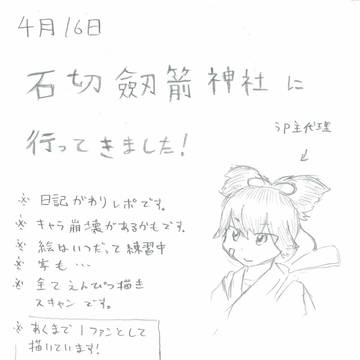 4月16日
石切劔箭神社に
行ってきました!
うp主代理
※ 日記がわりレポです。
※ キャラ崩壊があるかもです。
※ 絵はいつだって練習中
※ 字も…
※ 全てえんぴつ描き
スキャンです。
※ あくまで1ファンとして
描いています!